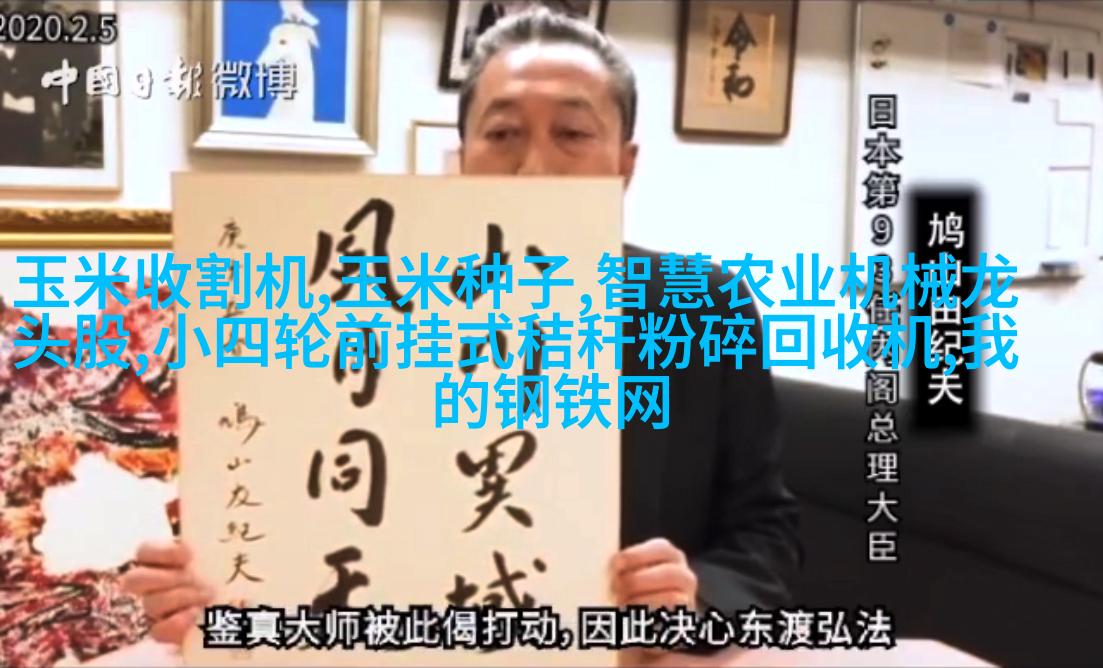 2020.2.5
中國日報 微博
令和
日本第93任内阁总理大臣
鸠山由纪夫
玉米收割机,玉米种子,智慧农业机械龙
头股,小四轮前挂式秸秆粉碎回收机,我
的钢铁网
山川異域
風月同天
鳩山友紀夫
鉴真大师被此偈打动,因此决心东渡弘法